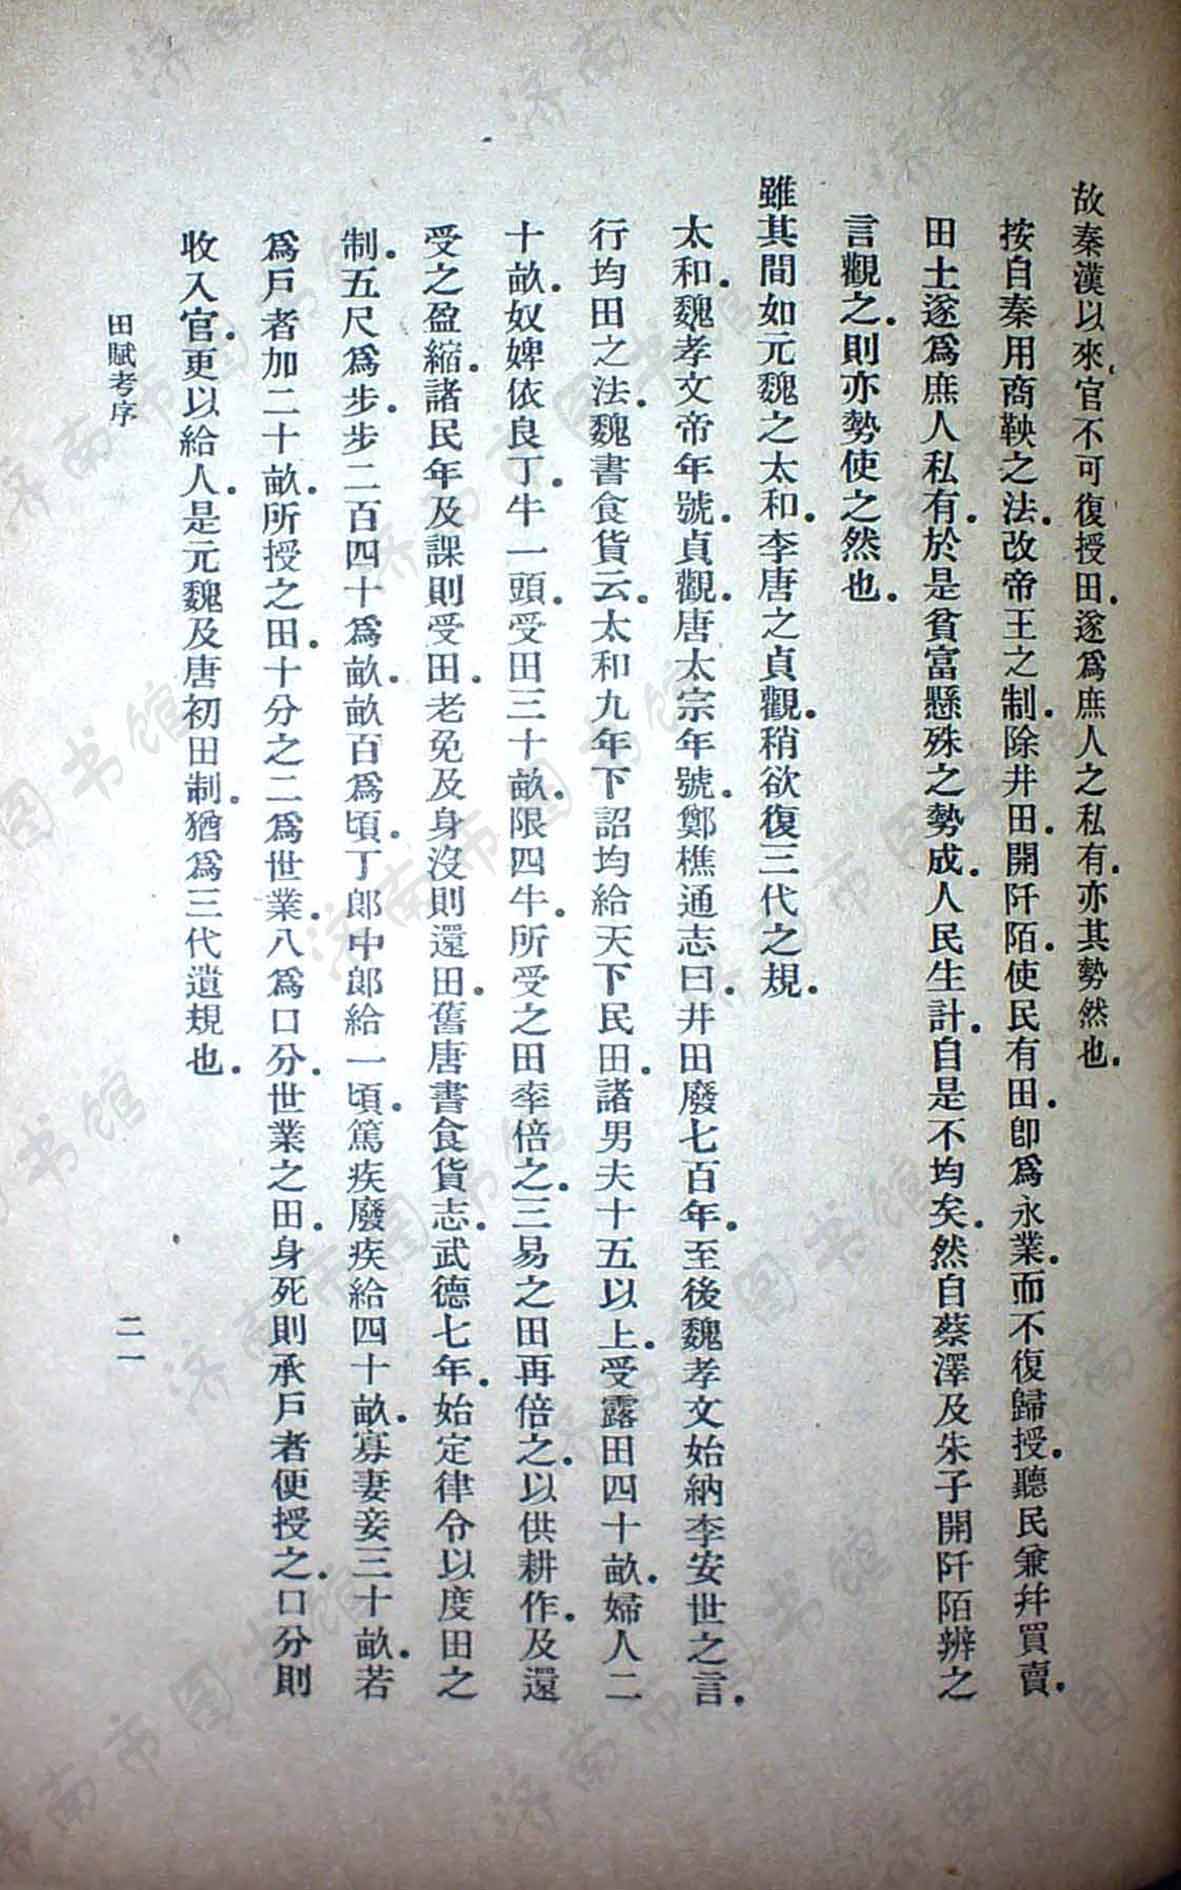 故秦漢以來．官不可復授田．遂爲庶人之私有．亦其勢然也．
按自秦用商鞅之法．改帝王之制．除井田．開阡陌．使民有田．卽爲永業．而不復歸授．聽民兼幷買賣．
田土遂爲庶人私有．於是貧富懸殊之勢成．人民生計．自是不均矣．然自蔡澤及朱子開阡陌辨之
言觀之．則亦勢使之然也．
雖其間如元魏之太和．李唐之貞觀．稍欲復三代之規．
太和．魏孝文帝年號．貞觀．唐太宗年號．鄭樵通志曰．井田廢七百年．至後魏孝文始納李安世之言．
行均田之法．魏書食貨云．太和九年下詔均給天下民田．諸男夫十五以上．受露田四十畝．婦人二
十畝．奴婢依良丁．牛一頭．受田三十畝．限四牛．所受之田率倍之．三易之田再倍之．以供耕作．及還
受之盈縮．諸民年及課則受田．老免及身沒則還田．舊唐書食貨志．武德七年．始定律令以度田之
制．五尺爲步．步二百四十爲畝．畝百爲頃．丁郎中郎給一頃．篤疾廢疾給四十畝．寡妻妾三十畝．若
爲戶者加二十畝．所授之田．十分之二爲世業．八爲口分．世業之田．身死則承戶者便授之．口分則
收入官．更以給人．是元魏及唐初田制．猶爲三代遺規也．
田賦考序
二一
济南市图书馆